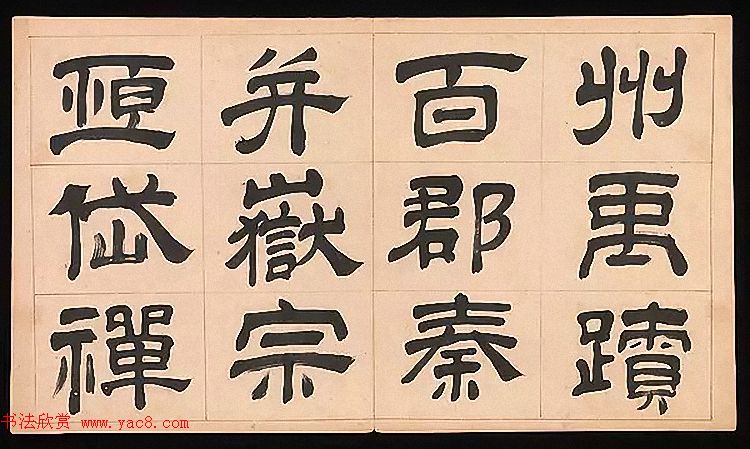 州禹蹟
百郡秦
并嶽宗
恒岱禪
书法欣赏 www.yac8.com